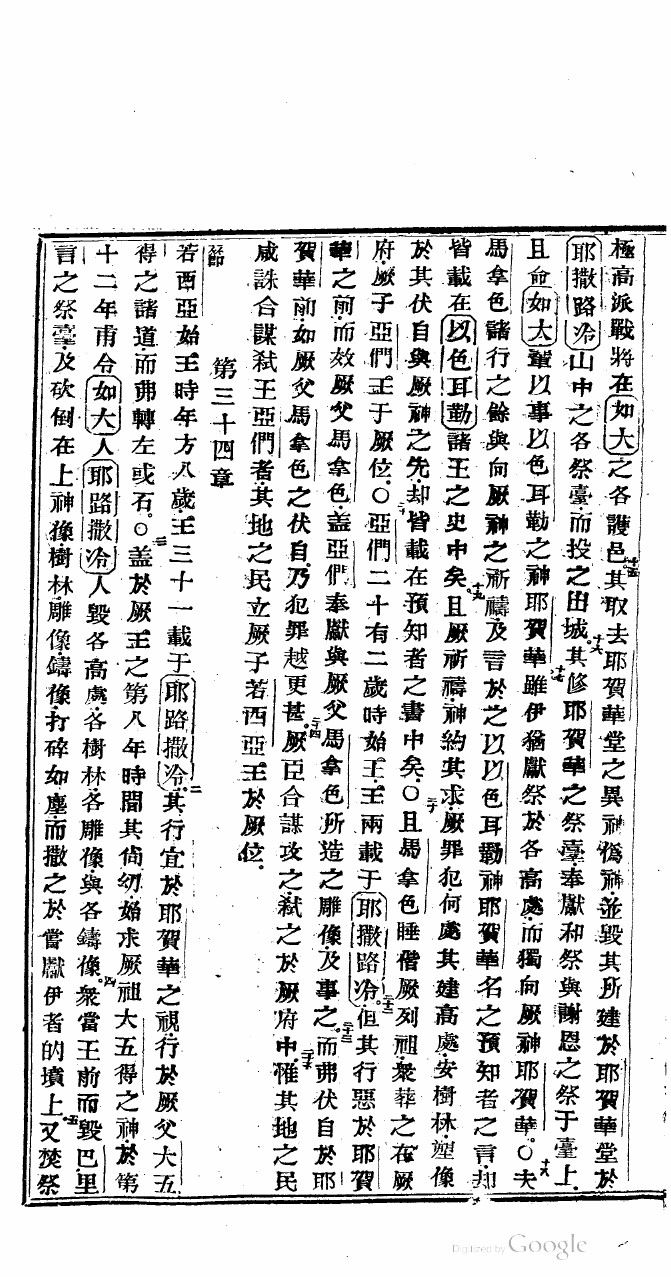 極高派戰將在如大之各護邑其取去耶賀華堂之異神偽神並毀其所建於耶賀華堂於
耶撒路冷山中之各祭臺而投之出城其修耶賀華之祭臺奉獻和祭與謝恩之祭于臺上
且命如大輩以事以色耳勒之神耶賀華雖伊猶獻祭於各高處而獨向厥神耶賀華○夫
馬拿色諸行之餘與向厥神之祈禱及言於之以以色耳勒神耶賀華名之預知者之言却
皆載在以色耳勒諸王之史中矣且厥祈禱神約其求厥罪犯何處其建高處安樹林塑像
於其伏自與厥神之先却皆載在預知者之書中矣○且馬拿色睡偕厥列祖衆葬之在厥
府厥子亞們王于厥位○亞們二十有二歲時始王王兩載于耶撒路冷但其行惡於耶賀
華之前而效厥父馬拿色蓋亞們奉獻與厥父馬拿色所造之雕像及事之而弗伏自於耶
賀華前如厥父馬拿色之伏自乃犯罪越更甚厥臣合謀攻之弒之於厥府中惟其地之民
咸誅合謀弒王亞們者其地之民立厥子若西亞王於厥位
第三十四章
節
若西亞始王時年方八歲王三十一載于耶路撒冷其行宜於耶賀華之視行於厥父大五
得之諸道而弗轉左或右○蓋於厥王之第八年時間其尚幼始求厥祖大五得之神於第
十二年甫令如大人耶路撒冷人毀各高處各樹林各雕像與各鑄像衆當王前而毀巴里
言之祭臺及砍倒在上神像樹林雕像鑄像打碎如塵而撒之於嘗獻伊者的墳上又焚祭
Digitized by Google